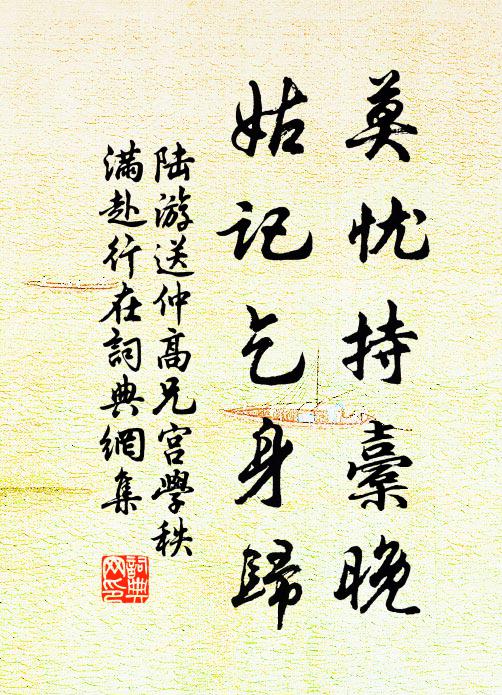 莫忧持橐晚
姑记乞身歸
陆游送仲高兄宫學秩
滿赴行在詞典網集
詞典
网印